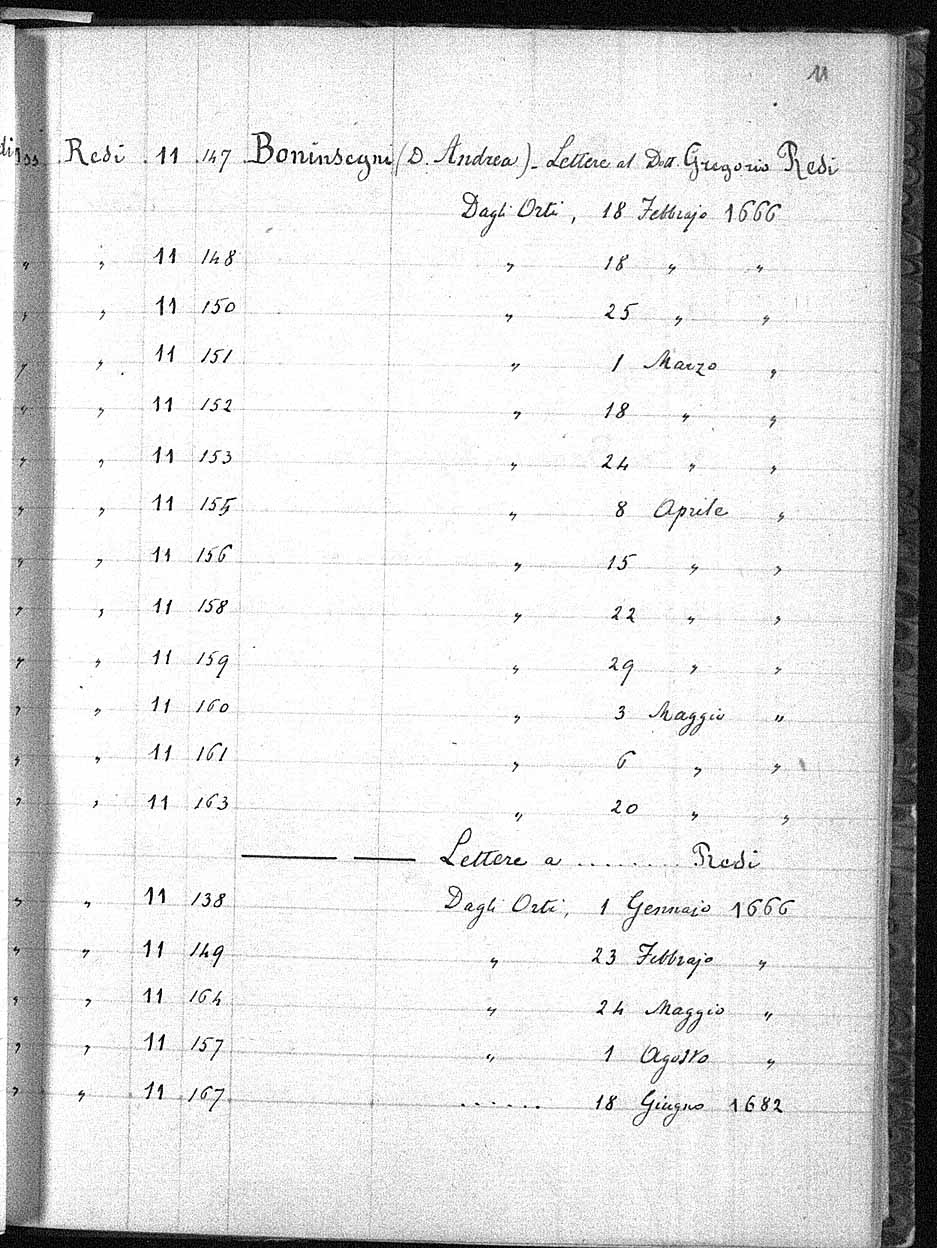 11
Redi 11 147 Boninsegni (D. Andrea) - Lettere al Dott. Gregorio Redi
Dagli Orti, 18 Febbrajo 1666
„ „ 11 148 „ 18 „ „
„ „ 11 150 „ 25 „ „
„ „ 11 151 „ 1 Marzo „
„ „ 11 152 „ 18 „ „
„ „ 11 153 „ 24 „ „
„ „ 11 155 „ 8 Aprile „
„ „ 11 156 „ 15 „ „
„ „ 11 158 „ 22 „ „
„ „ 11 159 „ 29 „ „
„ „ 11 160 „ 3 Maggio „
„ „ 11 161 „ 6 „ „
„ „ 11 163 „ 20 „ „
—— —— Lettere a ........ Redi
„ „ 11 138 Dagli Orti, 1 Gennajo 1666
„ „ 11 149 „ 23 Febbrajo „
„ „ 11 164 „ 24 Maggio „
„ „ 11 157 „ 1 Agosto „
„ „ 11 167 ...... 18 Giugno 1682